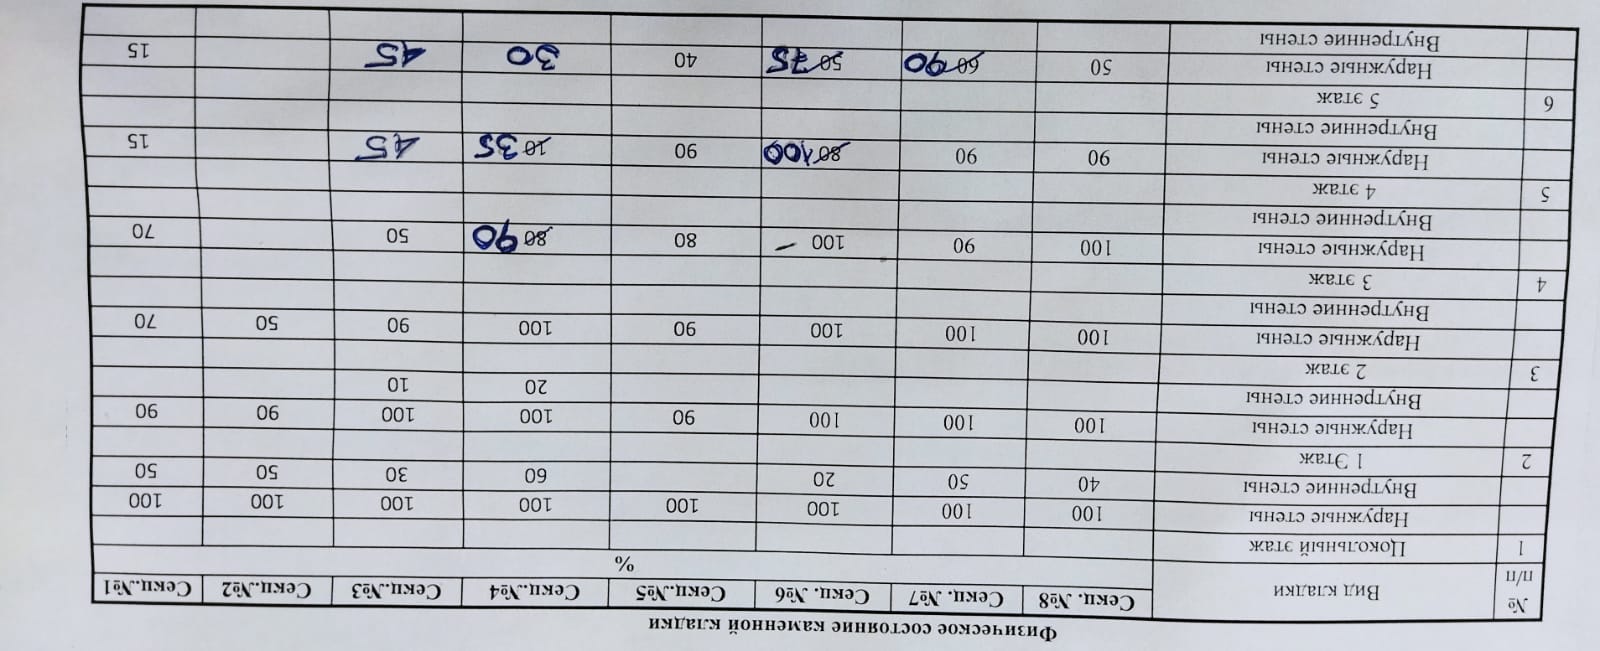 Физическое состояние каменной кладки
№ п/п Вид кладки Секц. №8 Секц. №7 Секц. №6 Секц.№5 Секц.№4 Секц.№3 Секц.№2 Секц.№1
%
1 Цокольный этаж
Наружные стены 100 100 100 100 100 100 100 100
Внутренние стены 40 50 20 60 30 50 50
2 1 Этаж
Наружные стены 100 100 100 90 100 100 90 90
Внутренние стены 20 10
3 2 этаж
Наружные стены 100 100 100 90 100 90 50 70
Внутренние стены
4 3 этаж
Наружные стены 100 90 100 – 80 80 90 50 70
Внутренние стены
5 4 этаж
Наружные стены 90 90 80 100 90 10 35 45 15
Внутренние стены
6 5 этаж
Наружные стены 50 60 90 50 75 40 30 45 15
Внутренние стены